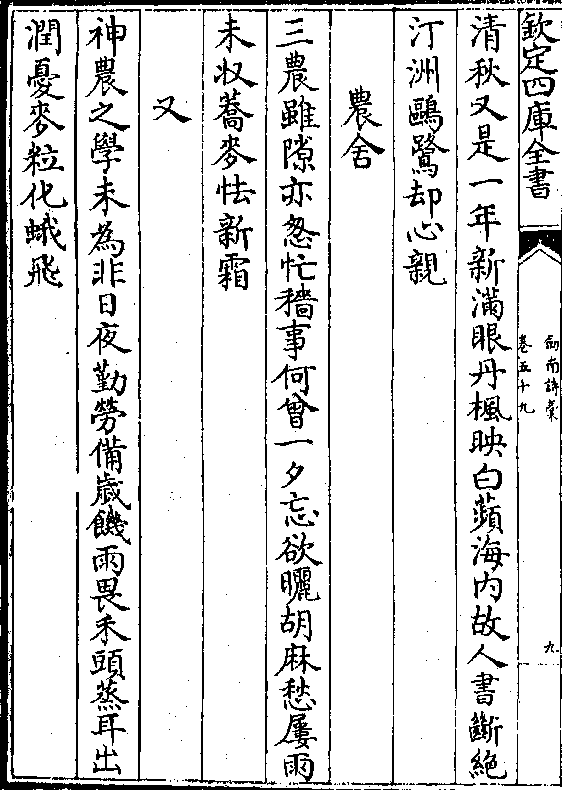 欽定四庫全書
劍南詩稾
卷五十九
九
清秋又是一年新滿眼丹楓映白蘋海内故人書斷絶
汀洲鷗鷺却心親
農舍
三農雖隙亦怱忙穡事何曾一夕忘欲曬胡麻愁屢雨
未収蕎麥怯新霜
又
神農之學未為非日夜勤勞備歳饑雨畏禾頭蒸耳出
潤憂麥粒化蛾飛